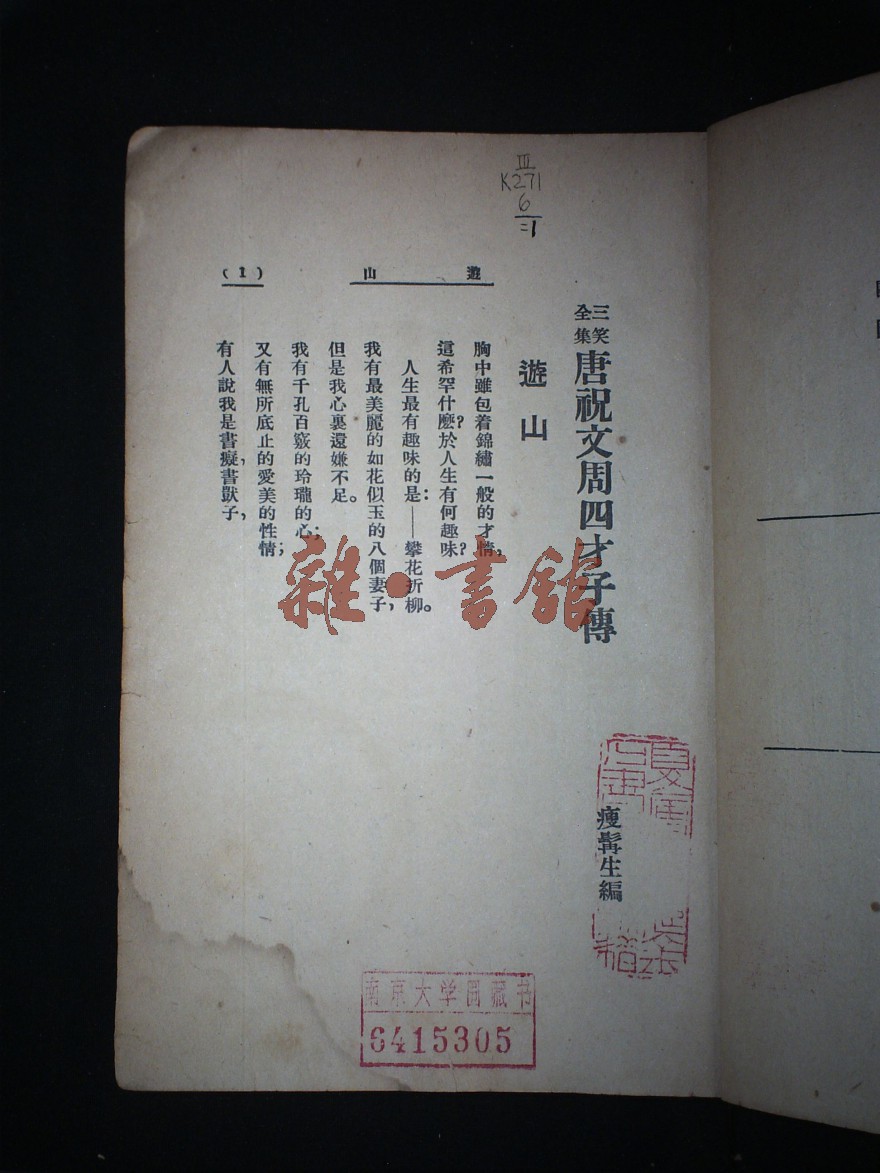 III
K271
6
=1
三笑
全集
唐祝文周四才子傳
瘦鬅生編
遊山
胸中雖包着錦繡一般的才情，
這希罕什麼？於人生有何趣味？
人生最有趣味的是：——攀花折柳。
我有最美麗的如花似玉的八個妻子，
但是我心裏還嫌不足。
我有千孔百竅的玲瓏的心；
又有無所底止的愛美的性情；
有人說我是書癡，書獃子，
遊山
(1)
雜·書館
南京大学图藏书
6415305